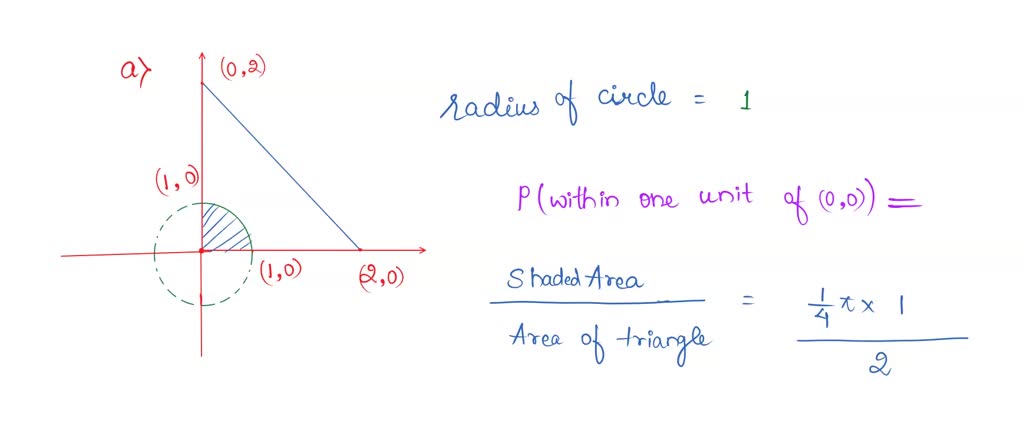 a>
(0,2)
(1,0)
(1,0)
(2,0)
radius of circle = 1
P(within one unit of (0,0)) =
Shaded Area
Area of triangle
=
1/4 π x 1
2